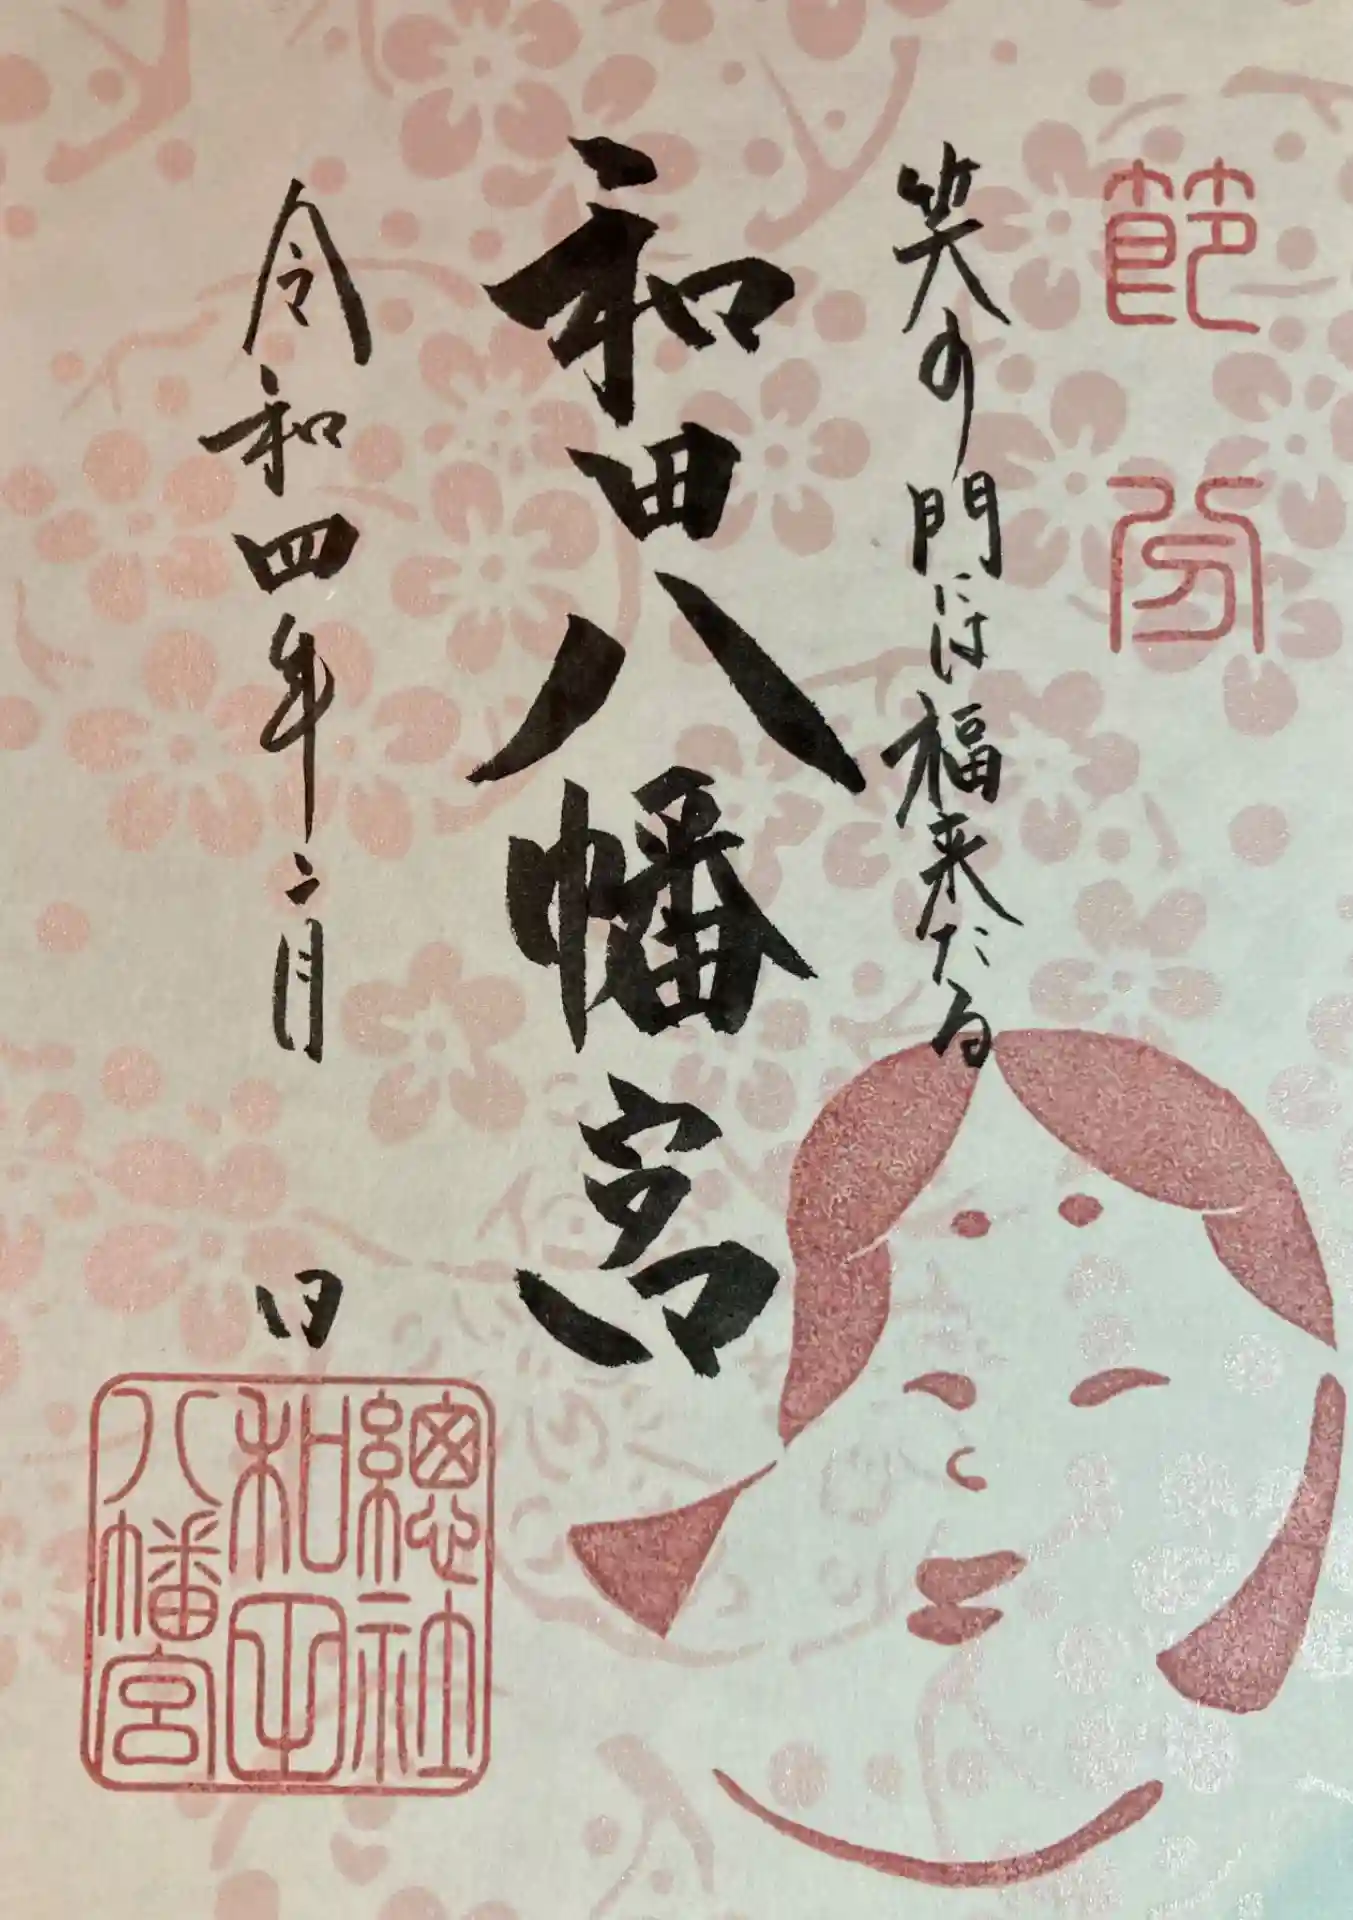 節分
笑の門には福来たる
和田八幡宮
令和四年二月 日
總社
和田
八幡宮